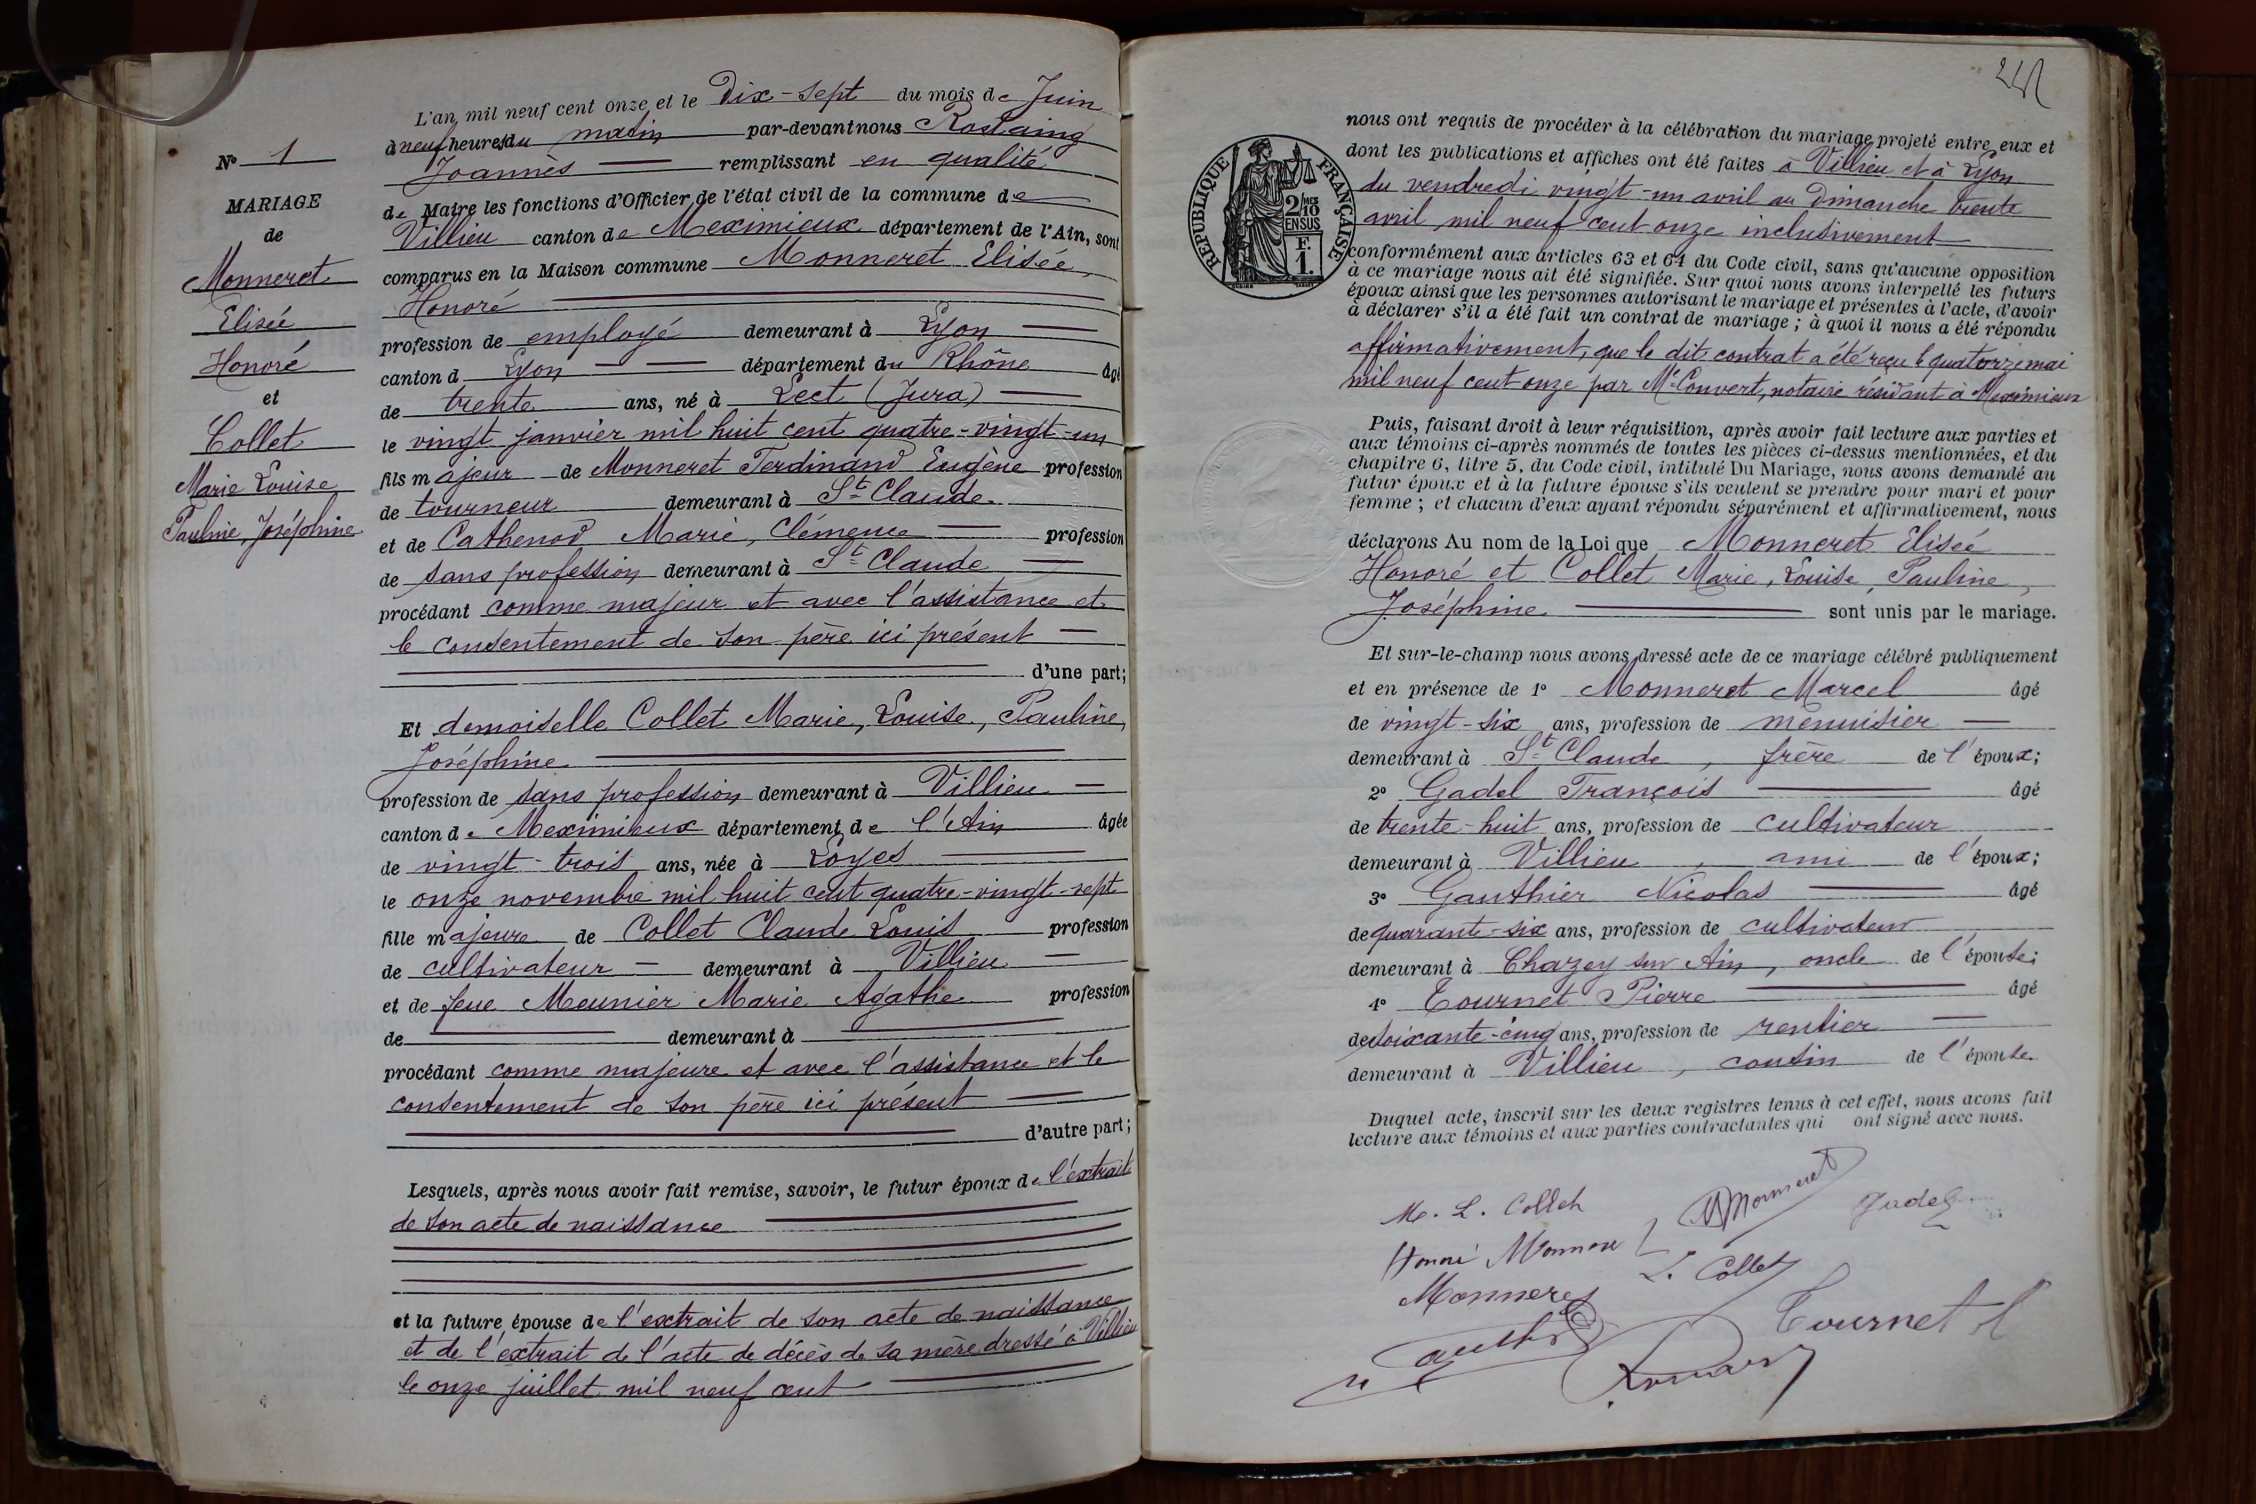 L'an mil neuf cent onze et le Dix-sept du mois de Juin
à neuf heures du matin par-devant nous Rostaing
Joannès remplissant en qualité
de Maire les fonctions d'Officier de l'état civil de la commune de
Villieu canton de Meximieux département de l'Ain, sont
comparus en la Maison commune Monneret Elisée,
Honoré
profession de employé demeurant à Lyon
canton d Lyon département du Rhône âgé
de trente ans, né à Lect (Jura)
le vingt janvier mil huit cent quatre-vingt-un
fils majeur de Monneret Ferdinand Eugène profession
de tourneur demeurant à St Claude
et de Cathenod Marie, Clémence profession
de sans profession demeurant à St Claude
procédant comme majeur et avec l'assistance et
le consentement de son père ici présent
d'une part;
Et demoiselle Collet Marie, Louise, Pauline,
Joséphine
profession de sans profession demeurant à Villieu
canton de Meximieux département de l'Ain âgée
de vingt-trois ans, née à Loyes
le onze novembre mil huit cent quatre-vingt-sept
fille majeure de Collet Claude Louis profession
de cultivateur demeurant à Villieu
et de feue Meunier Marie Agathe profession
de demeurant à
procédant comme majeure et avec l'assistance et le
consentement de son père ici présent
d'autre part;
Lesquels, après nous avoir fait remise, savoir, le futur époux de l'extrait
de son acte de naissance
et la future épouse de l'extrait de son acte de naissance
et de l'extrait de l'acte de décès de sa mère dressé à Villieu
le onze juillet mil neuf cent
No 1
MARIAGE
de
Monneret
Elisée
Honoré
et
Collet
Marie Louise
Pauline, Joséphine
RÉPUBLIQUE FRANÇAISE
2/10
MES
EN SUS
F.
1.
nous ont requis de procéder à la célébration du mariage projeté entre eux et
dont les publications et affiches ont été faites à Villieu et à Lyon
du vendredi vingt-un avril au Dimanche trente
avril mil neuf cent onze inclusivement
conformément aux articles 63 et 64 du Code civil, sans qu'aucune opposition
à ce mariage nous ait été signifiée. Sur quoi nous avons interpellé les futurs
époux ainsi que les personnes autorisant le mariage et présentes à l'acte, d'avoir
à déclarer s'il a été fait un contrat de mariage ; à quoi il nous a été répondu
affirmativement, que le dit contrat a été reçu le quatorze mai
mil neuf cent onze par Me Convert, notaire résidant à Meximieux
Puis, faisant droit à leur réquisition, après avoir fait lecture aux parties et
aux témoins ci-après nommés de toutes les pièces ci-dessus mentionnées, et du
chapitre 6, titre 5, du Code civil, intitulé Du Mariage, nous avons demandé au
futur époux et à la future épouse s'ils veulent se prendre pour mari et pour
femme ; et chacun d'eux ayant répondu séparément et affirmativement, nous
déclarons Au nom de la Loi que Monneret Elisée
Honoré et Collet Marie, Louise, Pauline,
Joséphine sont unis par le mariage.
Et sur-le-champ nous avons dressé acte de ce mariage célébré publiquement
et en présence de 1o Monneret Marcel âgé
de vingt-six ans, profession de menuisier
demeurant à St Claude, frère de l'époux;
2o Gadel François âgé
de trente-huit ans, profession de cultivateur
demeurant à Villieu, ami de l'époux;
3o Gauthier Nicolas âgé
de quarante-six ans, profession de cultivateur
demeurant à Chazey sur Ain, oncle de l'épouse;
4o Tournet Pierre âgé
de soixante-cinq ans, profession de rentier
demeurant à Villieu, cousin de l'épouse
Duquel acte, inscrit sur les deux registres tenus à cet effet, nous avons fait
lecture aux témoins et aux parties contractantes qui ont signé avec nous.
M. L. Collet
M Monneret
Gadel
Honoré Monneret
L. Collet
Monneret
Tournet